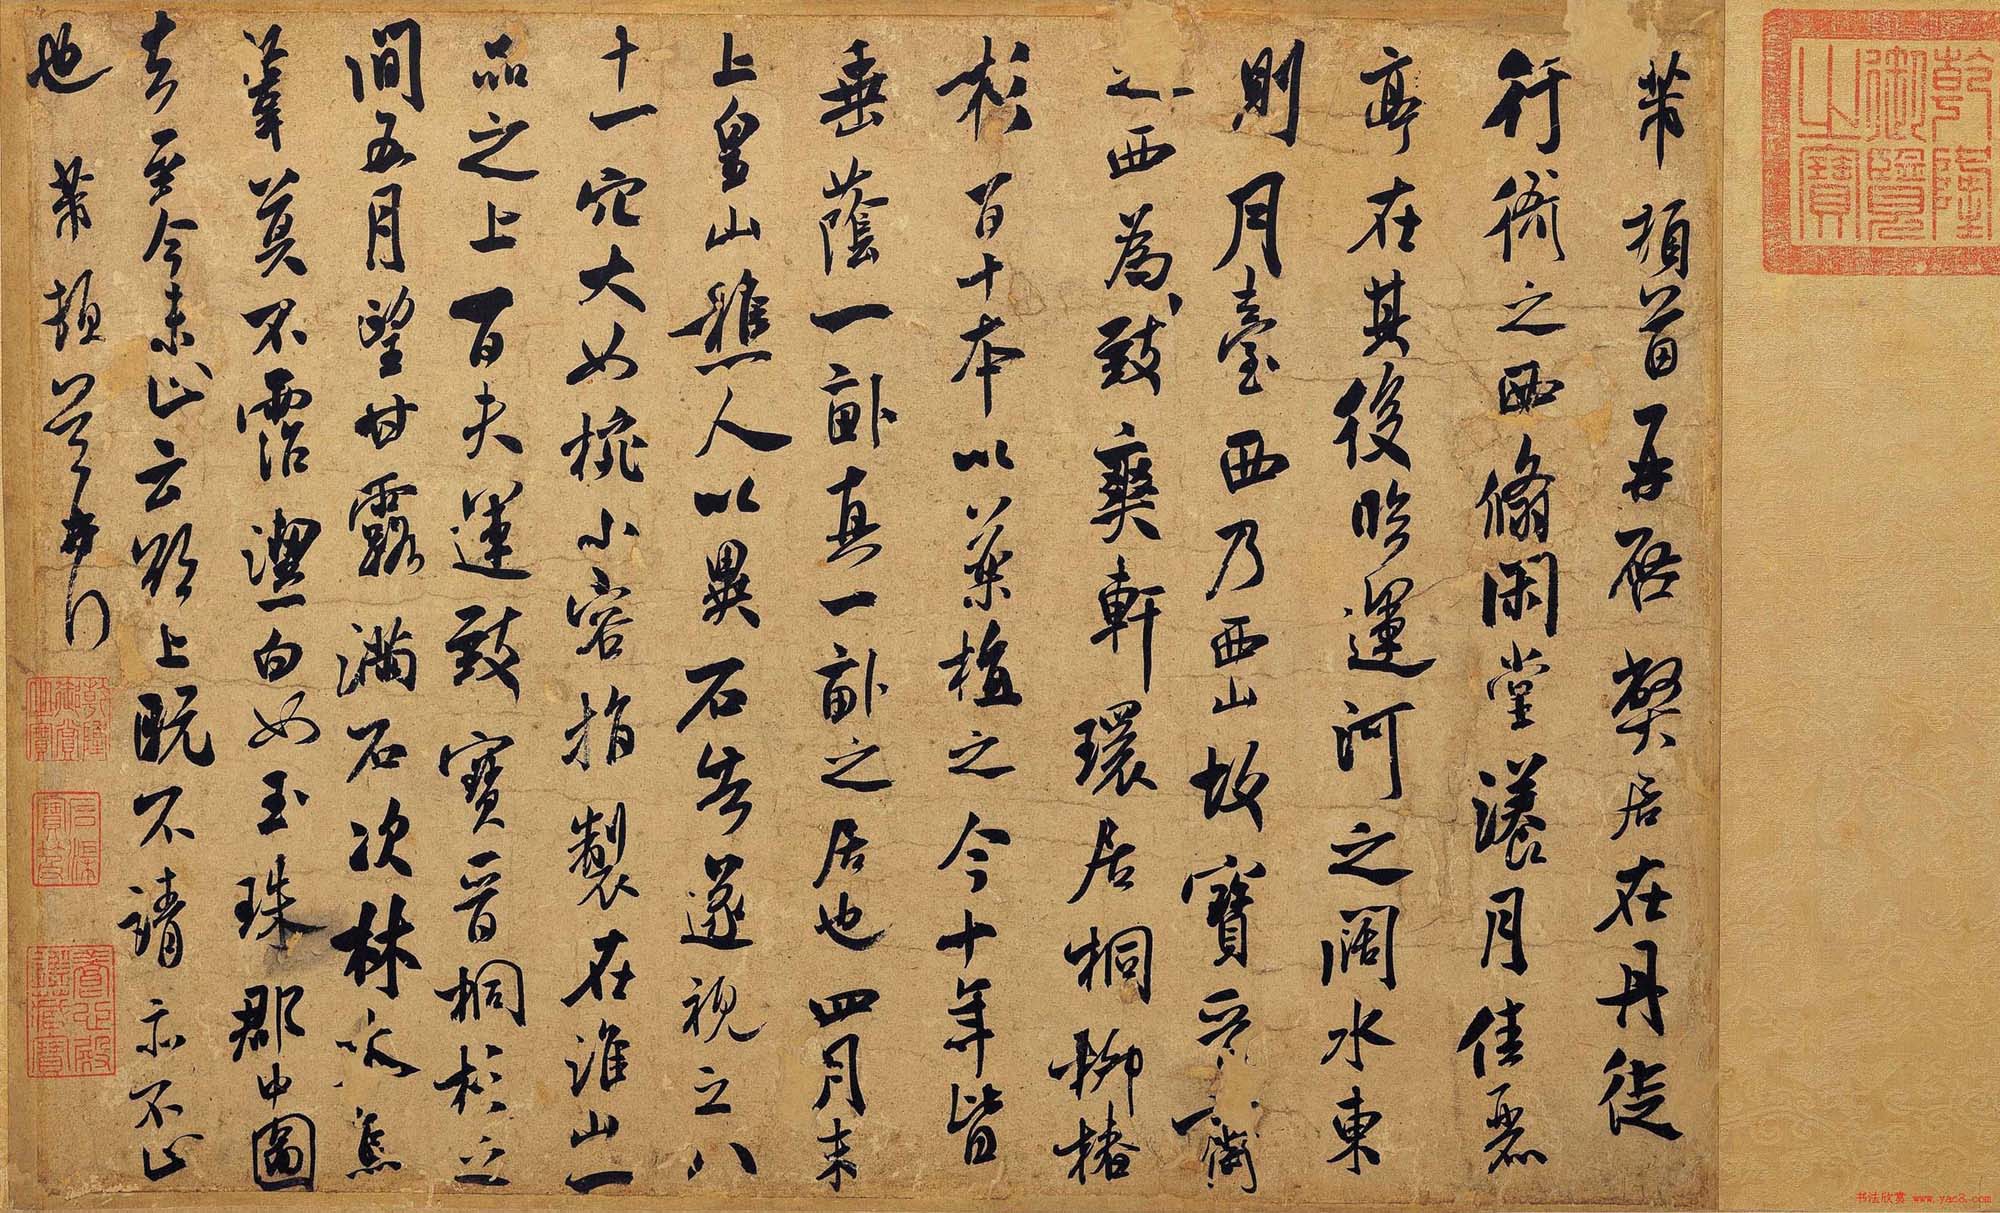 乾隆
御覽
之寶
芾頓首再啓弊居在丹徒
行衙之西翛閑堂漾月佳麗
亭在其後臨運河之闊水東
則月臺西乃西山故寶晉齋
之西為致爽軒環居桐柳椿
杉百十本以藥植之今十年皆
垂蔭一畝真一畝之居也四月末
上皇山樵人以異石告遂視之八
十一穴大如椀小容指製在淮山一
品之上百夫運致寶晉桐杉之
間五月望甘露滿石次林焦
葦莫不霑濕白如玉珠郡中圖
去至今未止云欲上既不請亦不止
也芾頓首再拜
石渠
寶笈
養心殿
鑑藏寶
书法欣赏 www.yac8.com